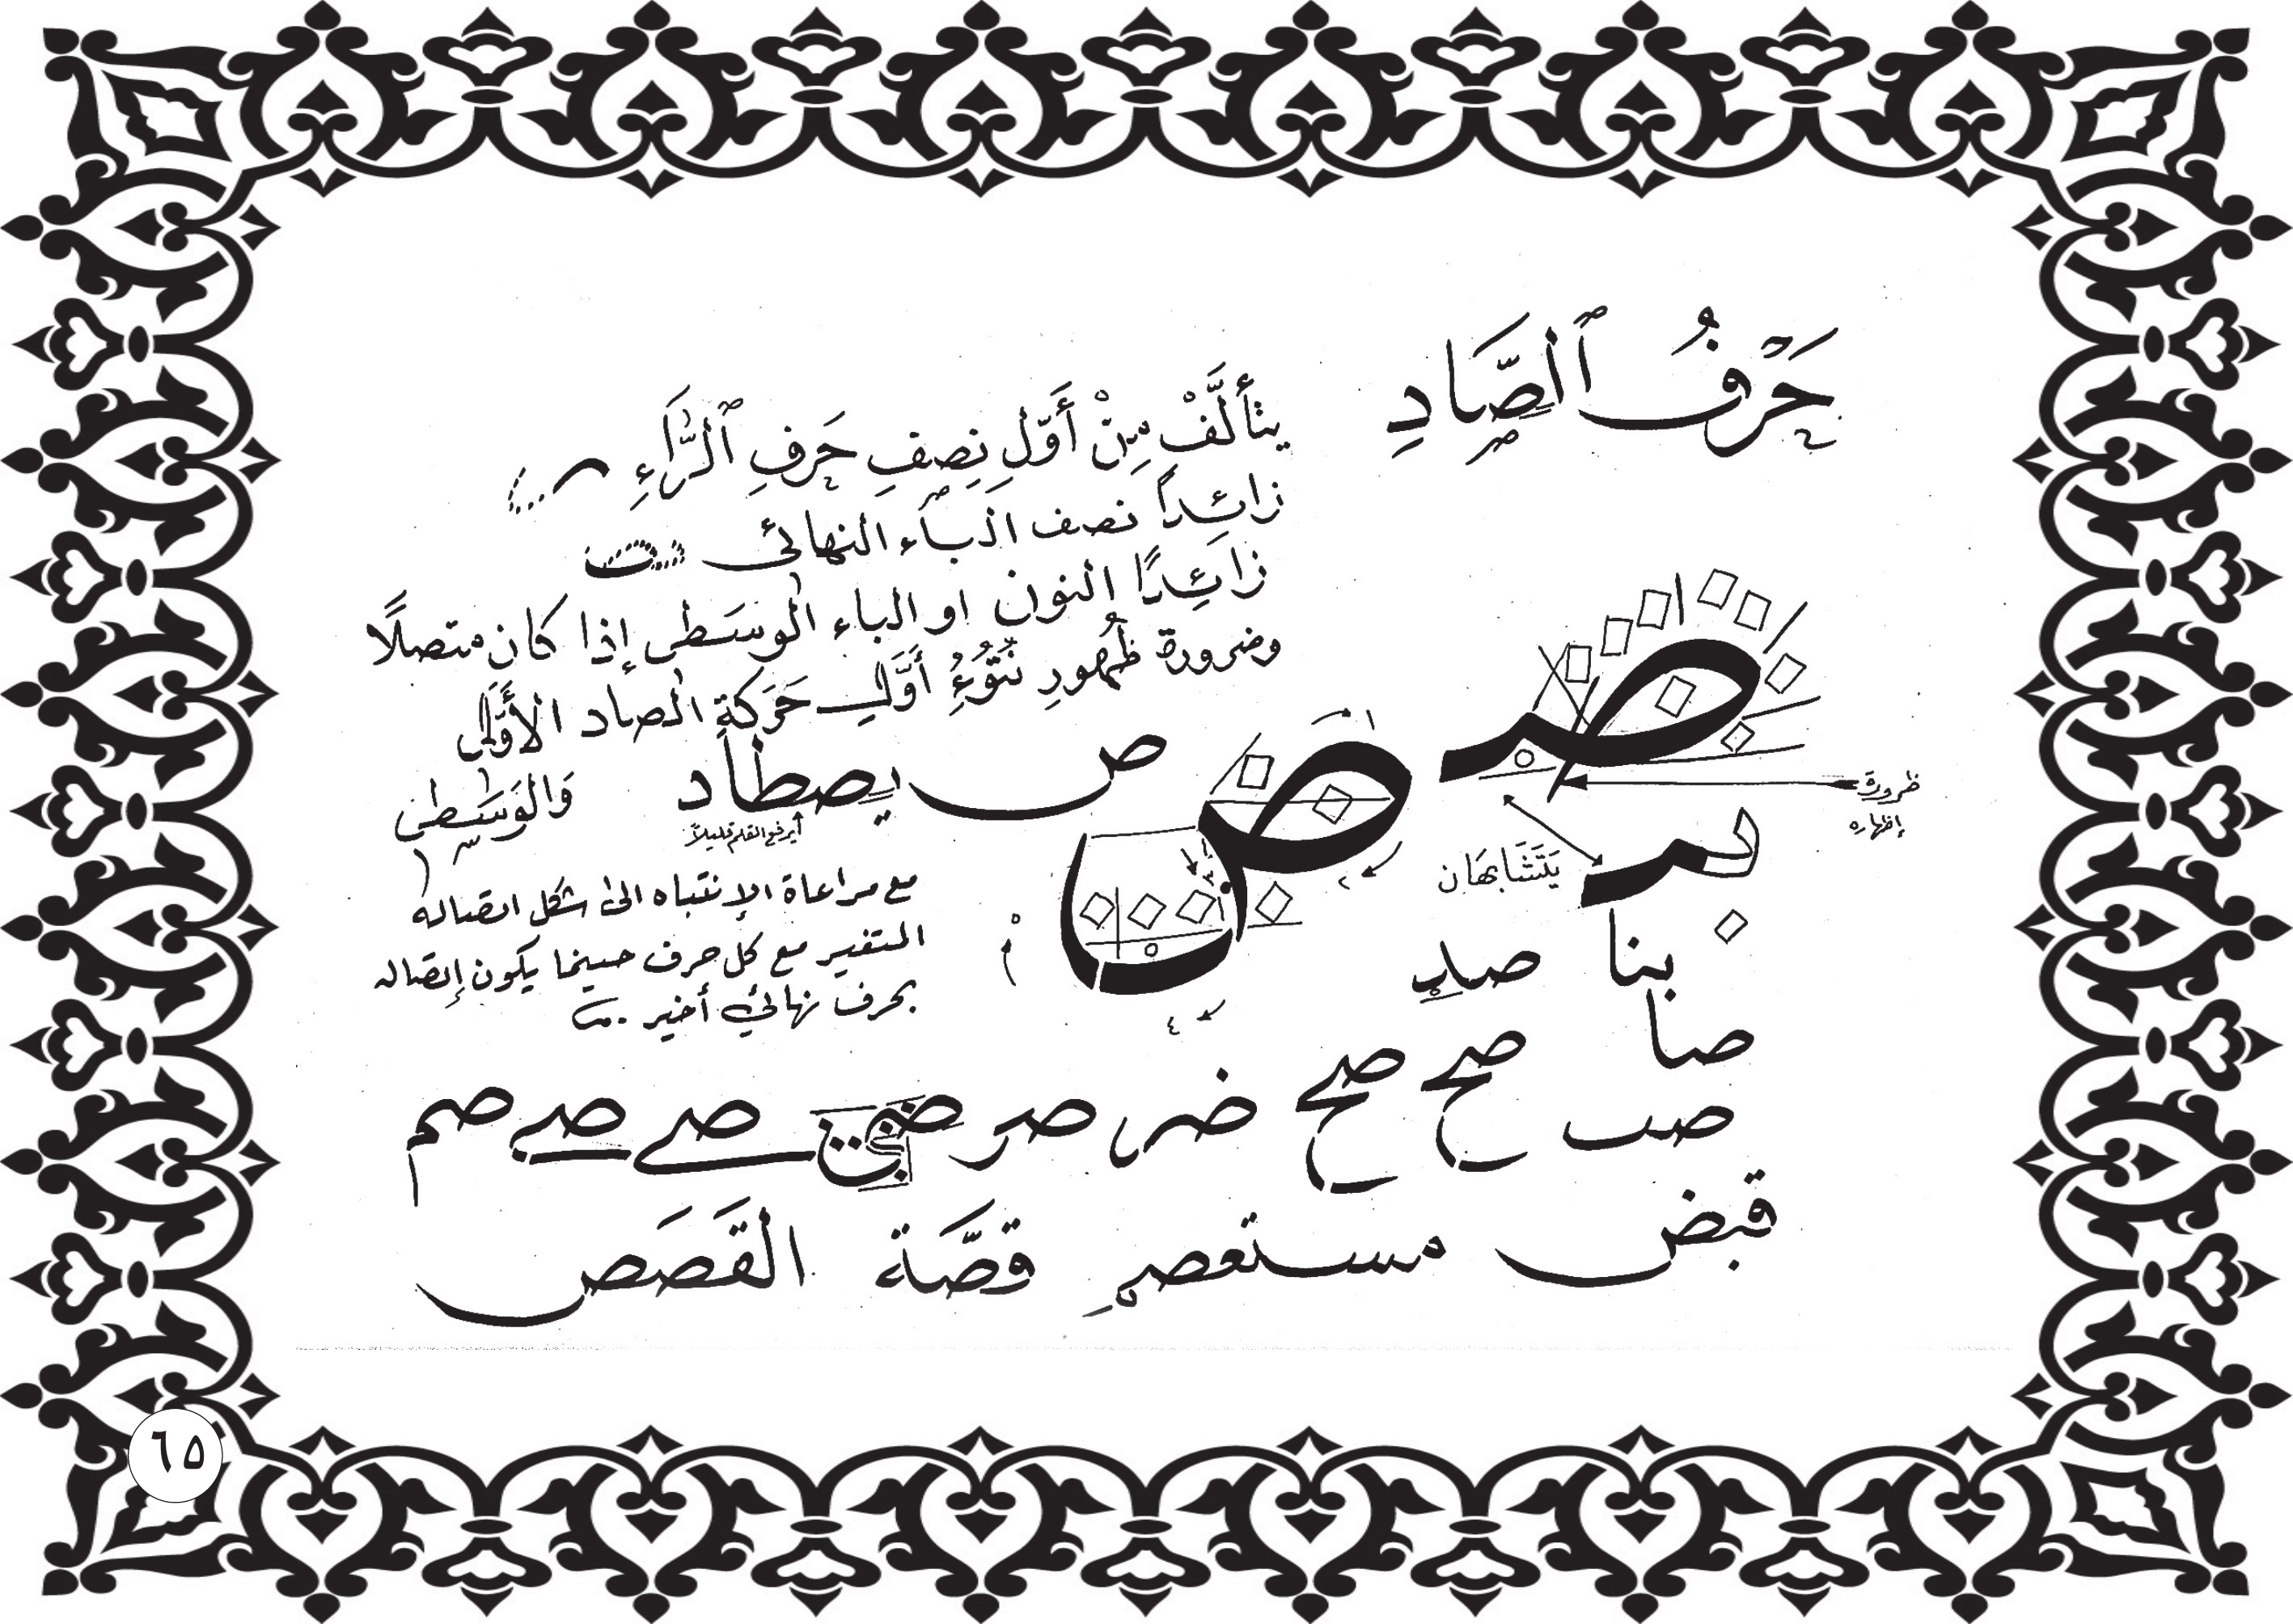 حَرْفُ ٱلصَّادِ
يتألَّفْ مِنْ أَوَّلِ نِصِفِ حَرفِ ٱلرَّاءِ
زائِداً نصف الباء النهائي
زائِدًا النون او الباء الوسَطى إذا كان متصلًا
وضرورة ظُهورِ نُتُوءِ أَوَّلِ حَرَكةِ الصاد الأَوَّلى
وَالوَسَطى
ص يصطاد
يرفع القلم قليلاً
مع مراعاة الإنتباه الى شكل اتصاله
المتغير مع كل حرف حينما يكون إتصاله
بحرف نهائي أخير
صـ
ضرورة
إظهاره
ص
١
٢
٣
٤
بر
يَتَشَابهَان
بنا صد
صا
صب صح صح ضر صر ضن صے صے صم
قبض مستعصٍ قصَّة القَصَص
٦٥